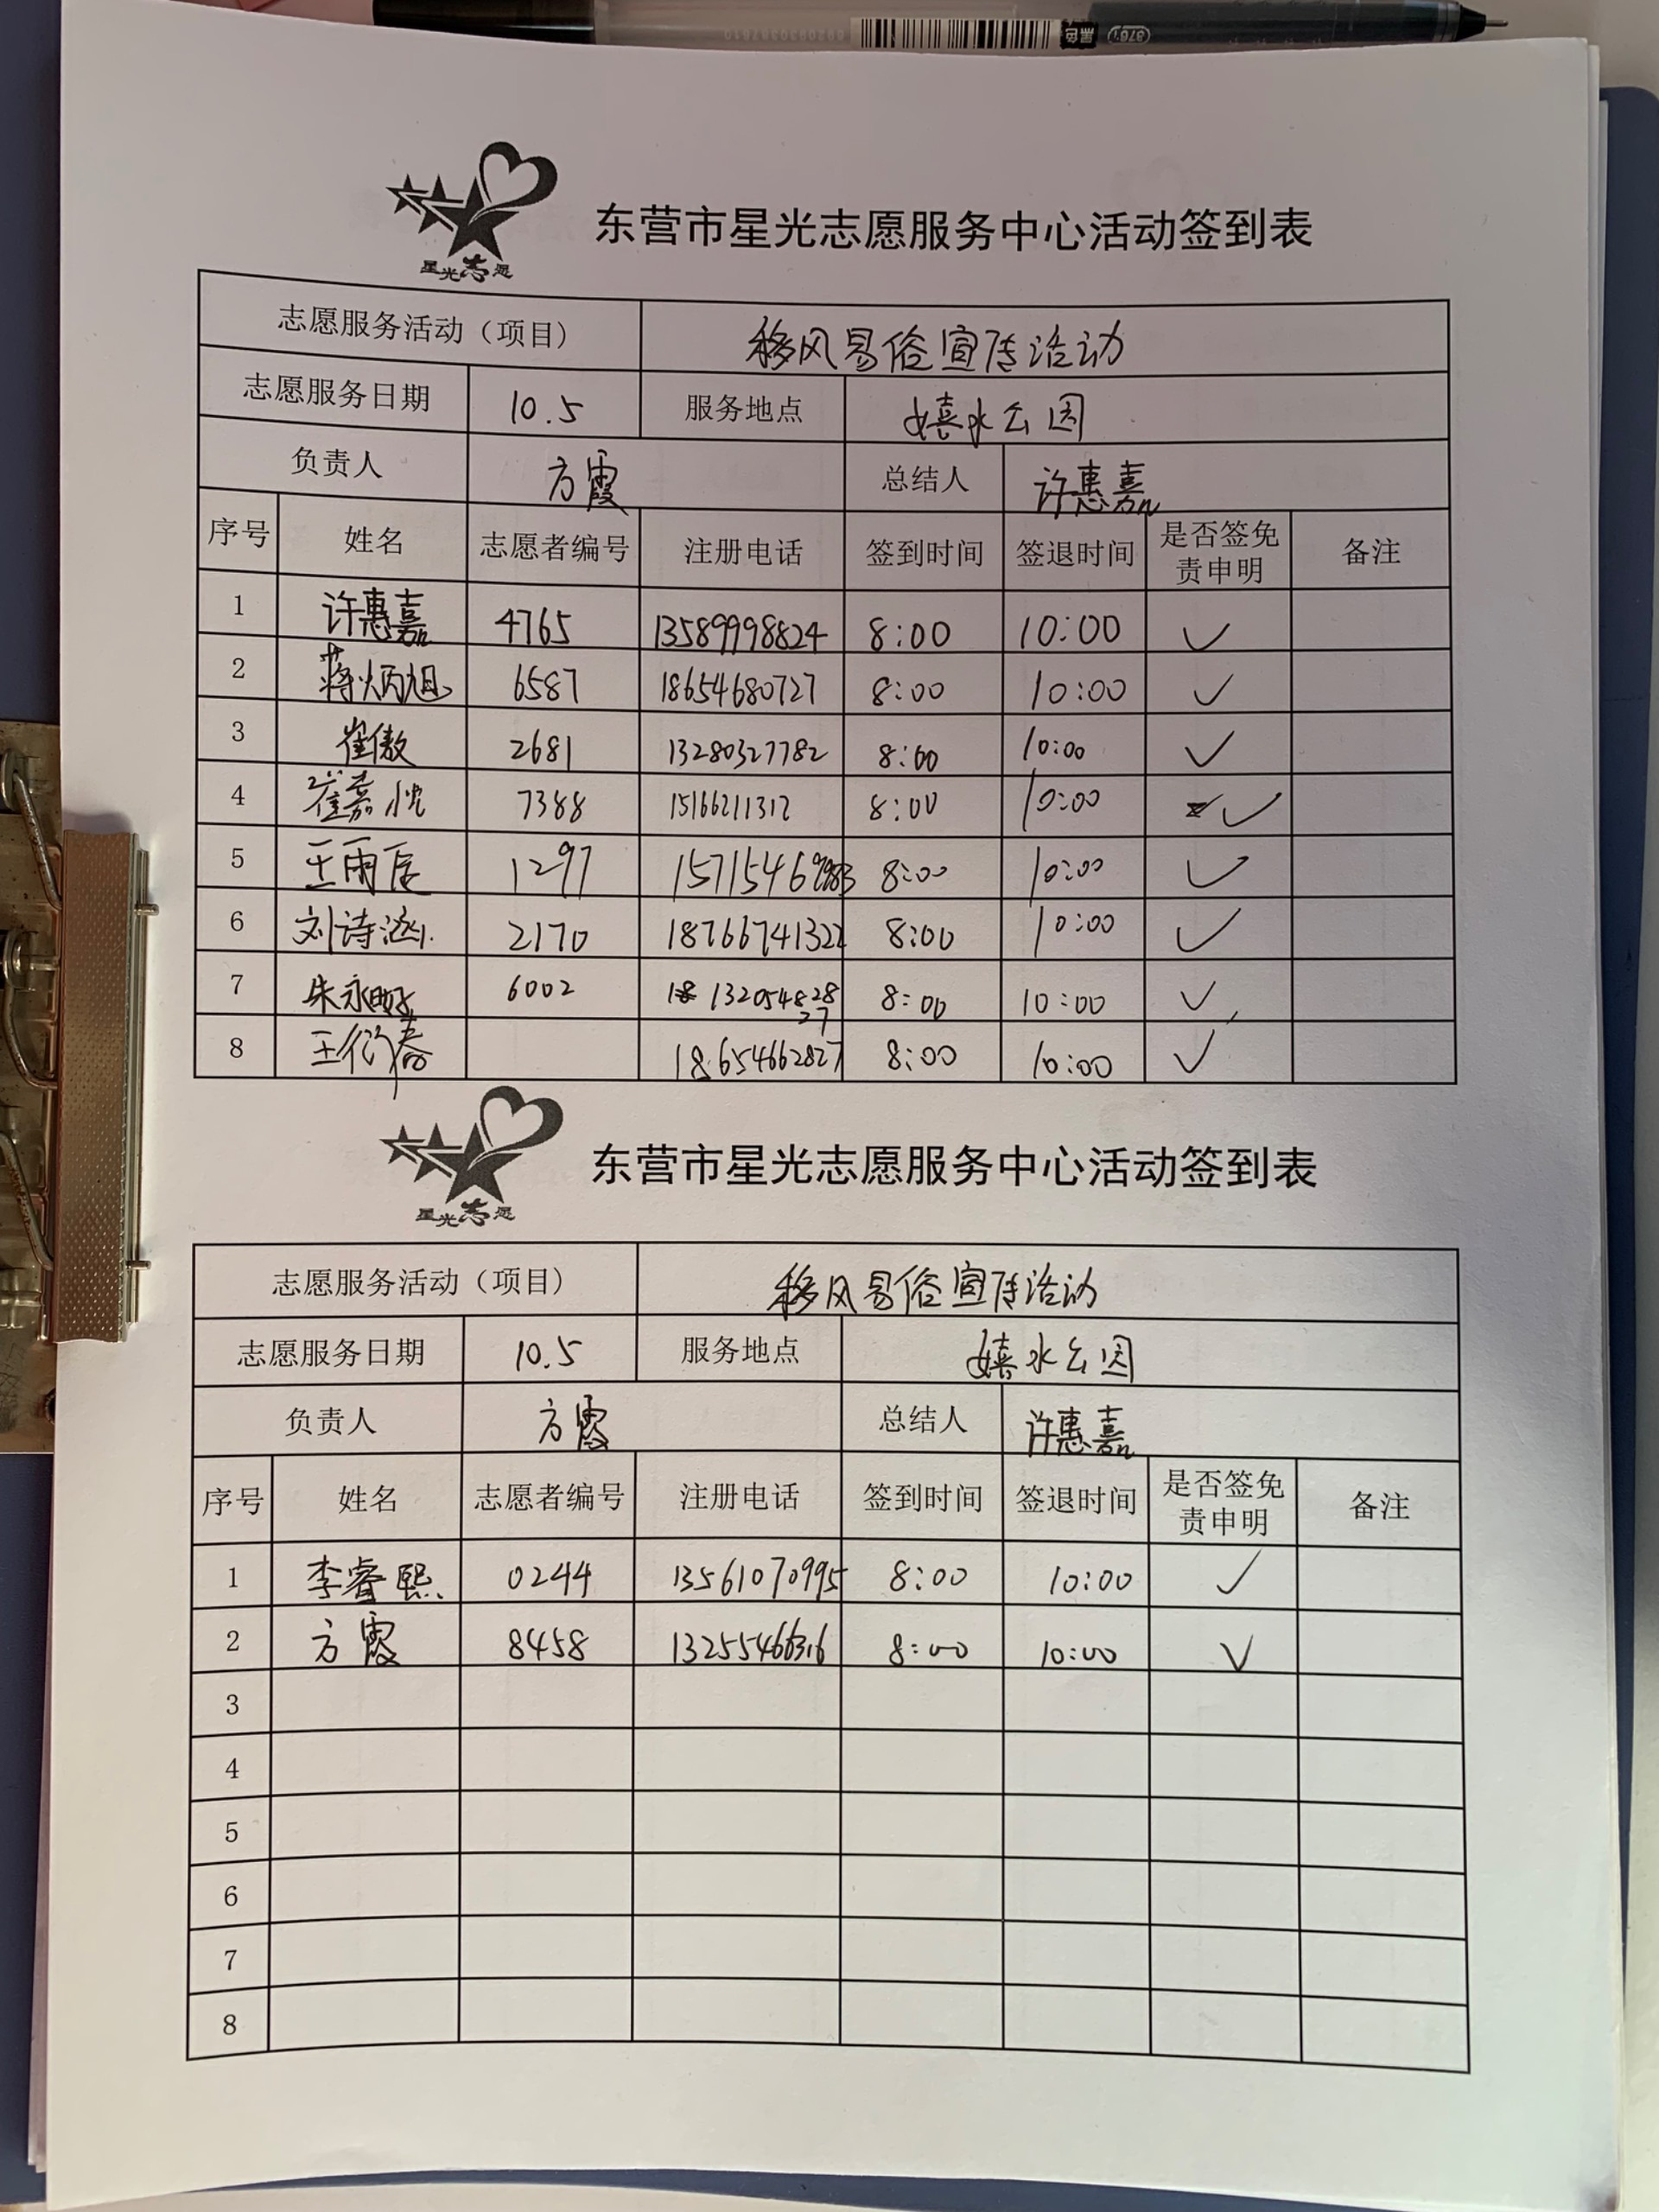 黑色
星光志愿
东营市星光志愿服务中心活动签到表
志愿服务活动（项目） 移风易俗宣传活动
志愿服务日期 10.5 服务地点 嬉水公园
负责人 方霞 总结人 许惠嘉
序号 姓名 志愿者编号 注册电话 签到时间 签退时间 是否签免责申明 备注
1 许惠嘉 4765 13589998824 8:00 10:00 ✓
2 蒋炳旭 6587 18654680727 8:00 10:00 ✓
3 崔傲 2681 13280327782 8:00 10:00 ✓
4 崔嘉悦 7388 15166211312 8:00 10:00 ✓
5 王雨辰 1297 8:00 10:00 ✓
6 刘诗涵 2170 18766741322 8:00 10:00 ✓
7 6002 8:00 10:00 ✓
8 王衍春 18654662827 8:00 10:00 ✓
星光志愿
东营市星光志愿服务中心活动签到表
志愿服务活动（项目） 移风易俗宣传活动
志愿服务日期 10.5 服务地点 嬉水公园
负责人 方霞 总结人 许惠嘉
序号 姓名 志愿者编号 注册电话 签到时间 签退时间 是否签免责申明 备注
1 李睿熙 0244 13561070995 8:00 10:00 ✓
2 方霞 8458 13255466316 8:00 10:00 ✓
3
4
5
6
7
8